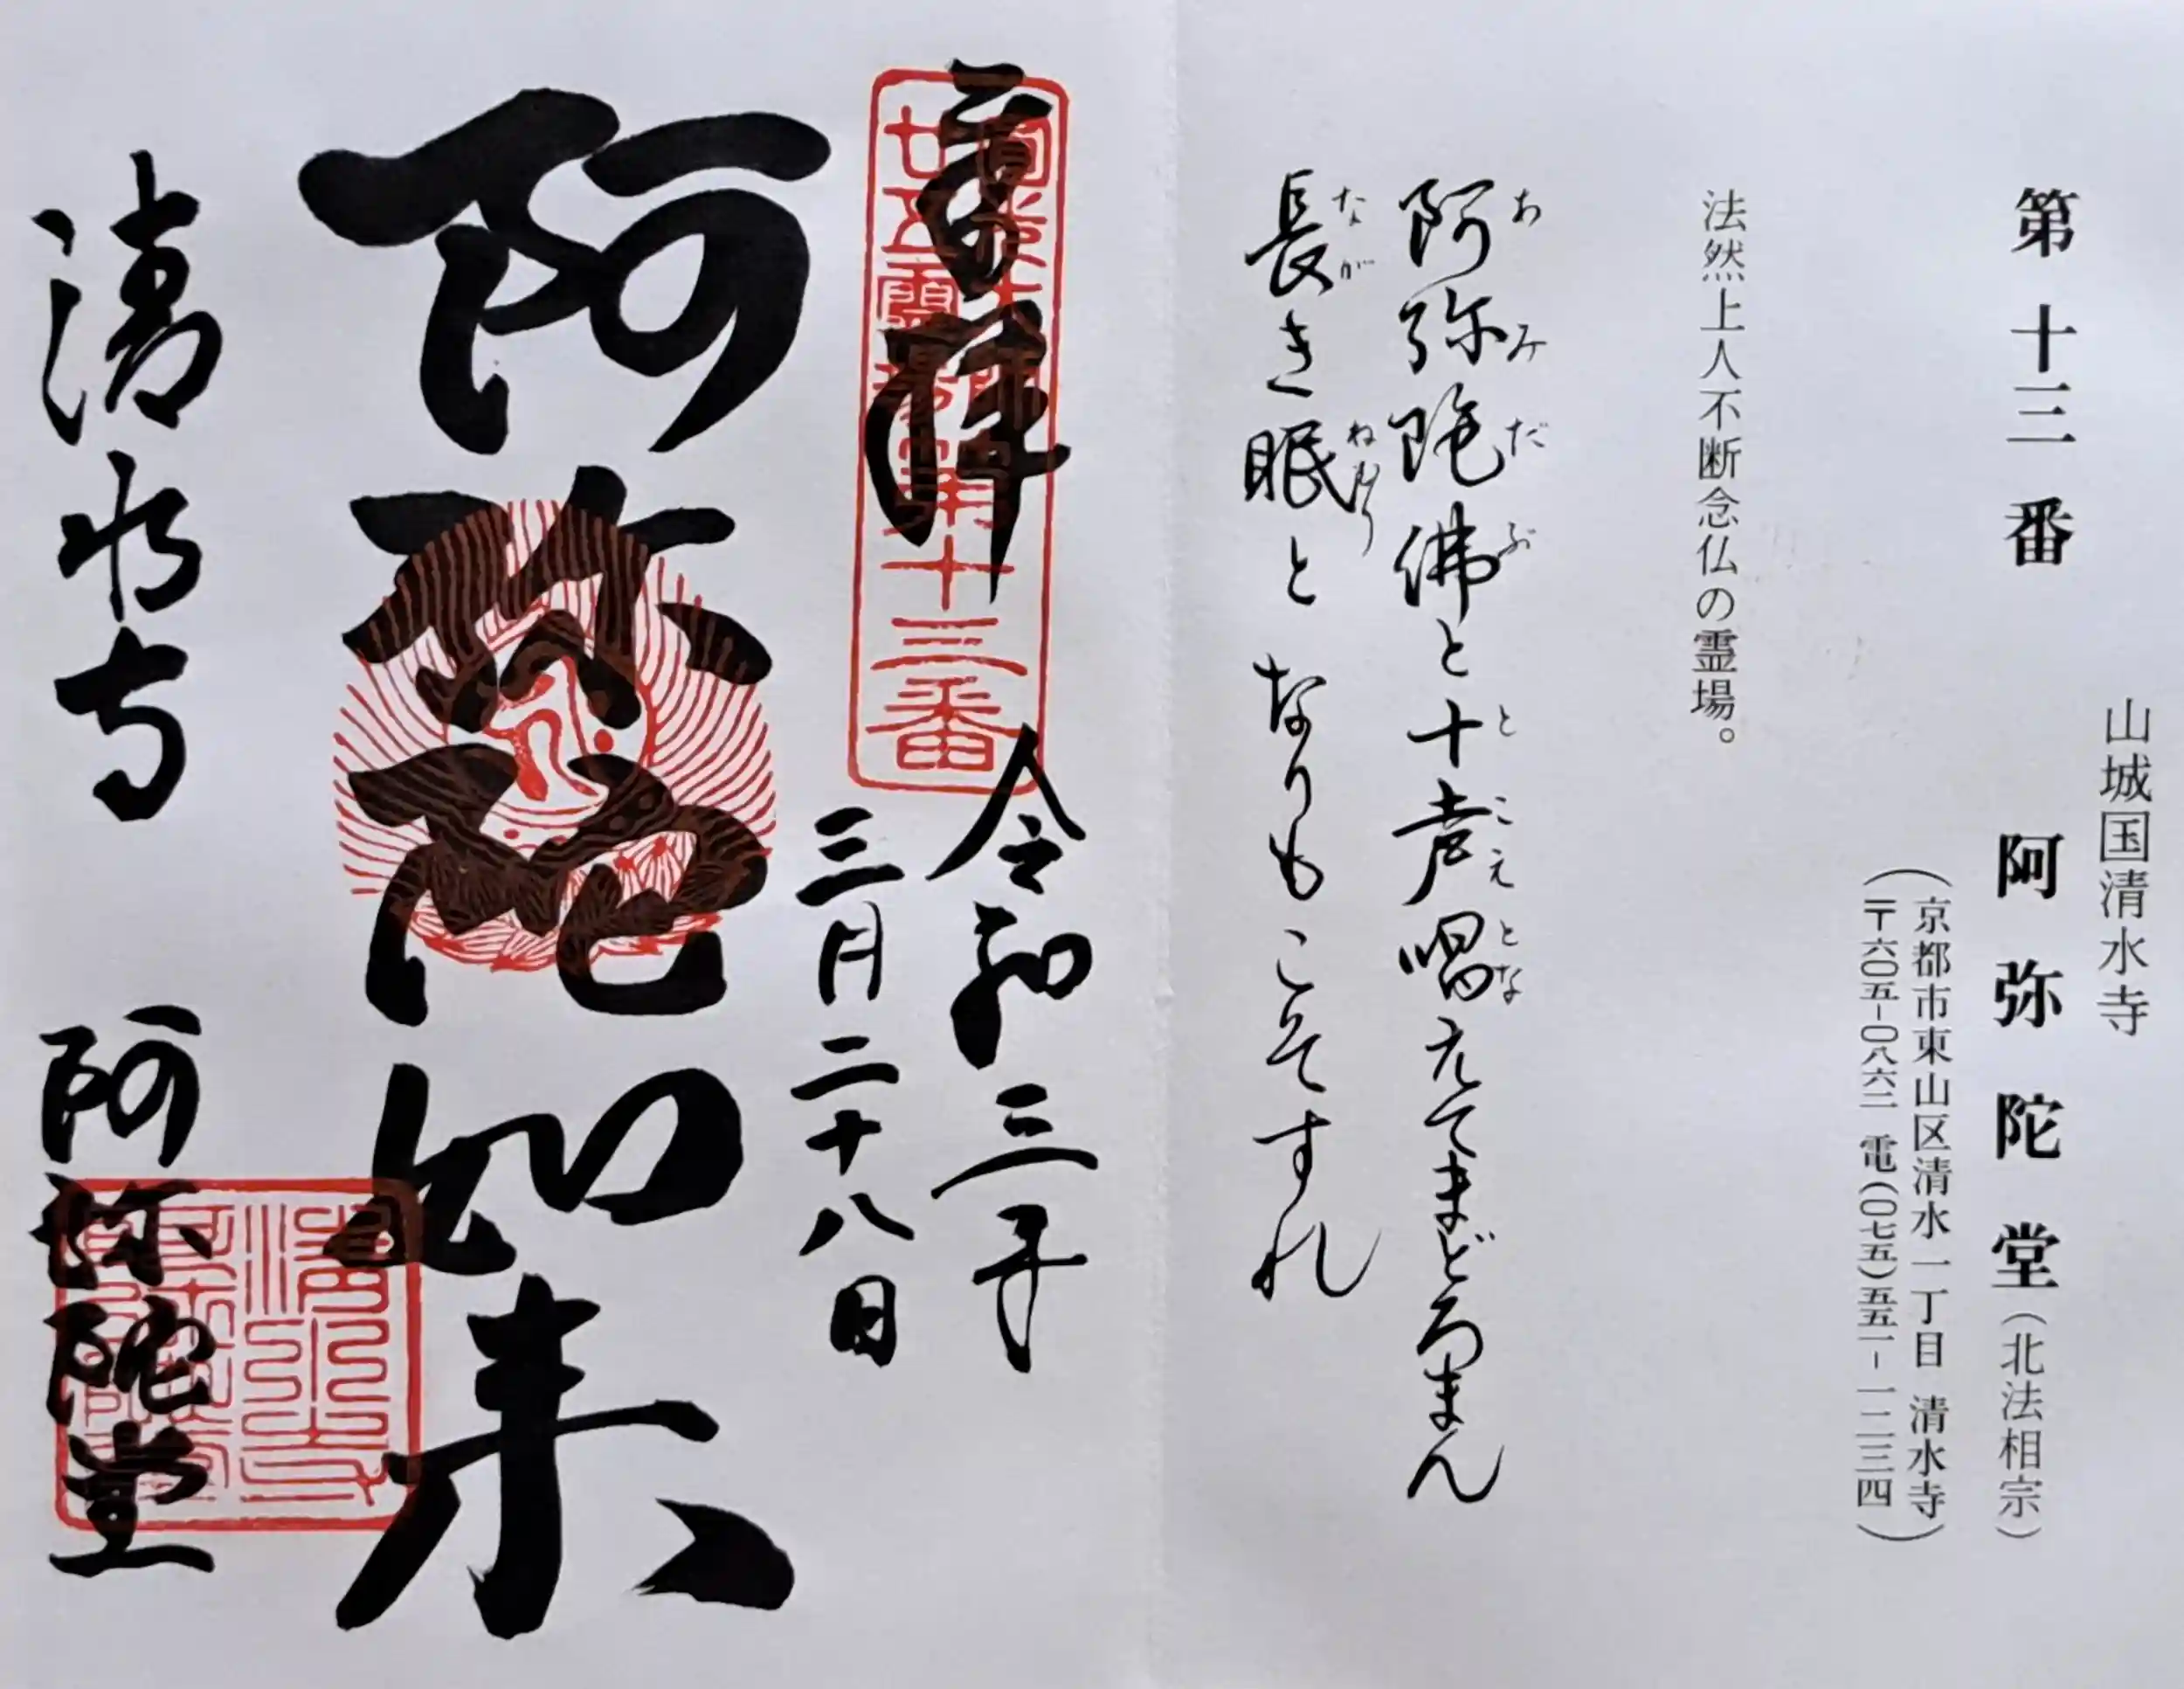 山城国清水寺
第十三番 阿弥陀堂(北法相宗)
(京都市東山区清水一丁目 清水寺
〒六〇五-〇八六二 電(〇七五)五五一-一二三四)
法然上人不断念仏の霊場。
阿弥陀佛と十声唱えてまどろまん
あみだぶ と こえ とな
長き眠と なりもこそすれ
なが ねむり
奉拝
廿五霊場第十三番
令和三年
三月二十八日
阿弥陀如来
清水寺 阿弥陀堂
清水寺